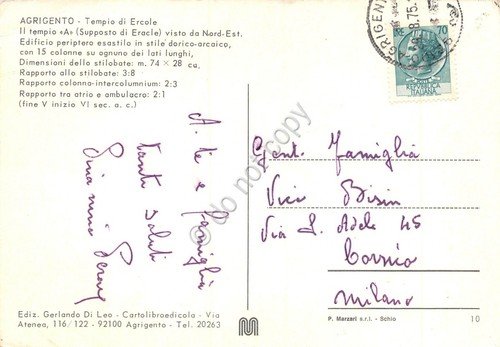 AGRIGENTO - Tempio di Ercole
Il tempio «A» (Supposto di Eracle) visto da Nord-Est.
Edificio periptero esastilo in stile dorico-arcaico,
con 15 colonne su ognuno dei lati lunghi.
Dimensioni dello stilobate: m. 74 × 28 ca.
Rapporto allo stilobate: 3:8
Rapporto colonna-intercolumnio: 2:3
Rapporto tra atrio e ambulacro: 2:1
(fine V inizio VI sec. a. c.)
AGRIGEN
8.75
70
A. te e famiglia
tanti saluti
Gent. Famiglia
Vici Bisin
Via S. Adele 45
Milano
do not copy
Ediz. Gerlando Di Leo - Cartolibraedicola - Via
Atenea, 116/122 - 92100 Agrigento - Tel. 20263
P. Marzari s.r.l. - Schio
10